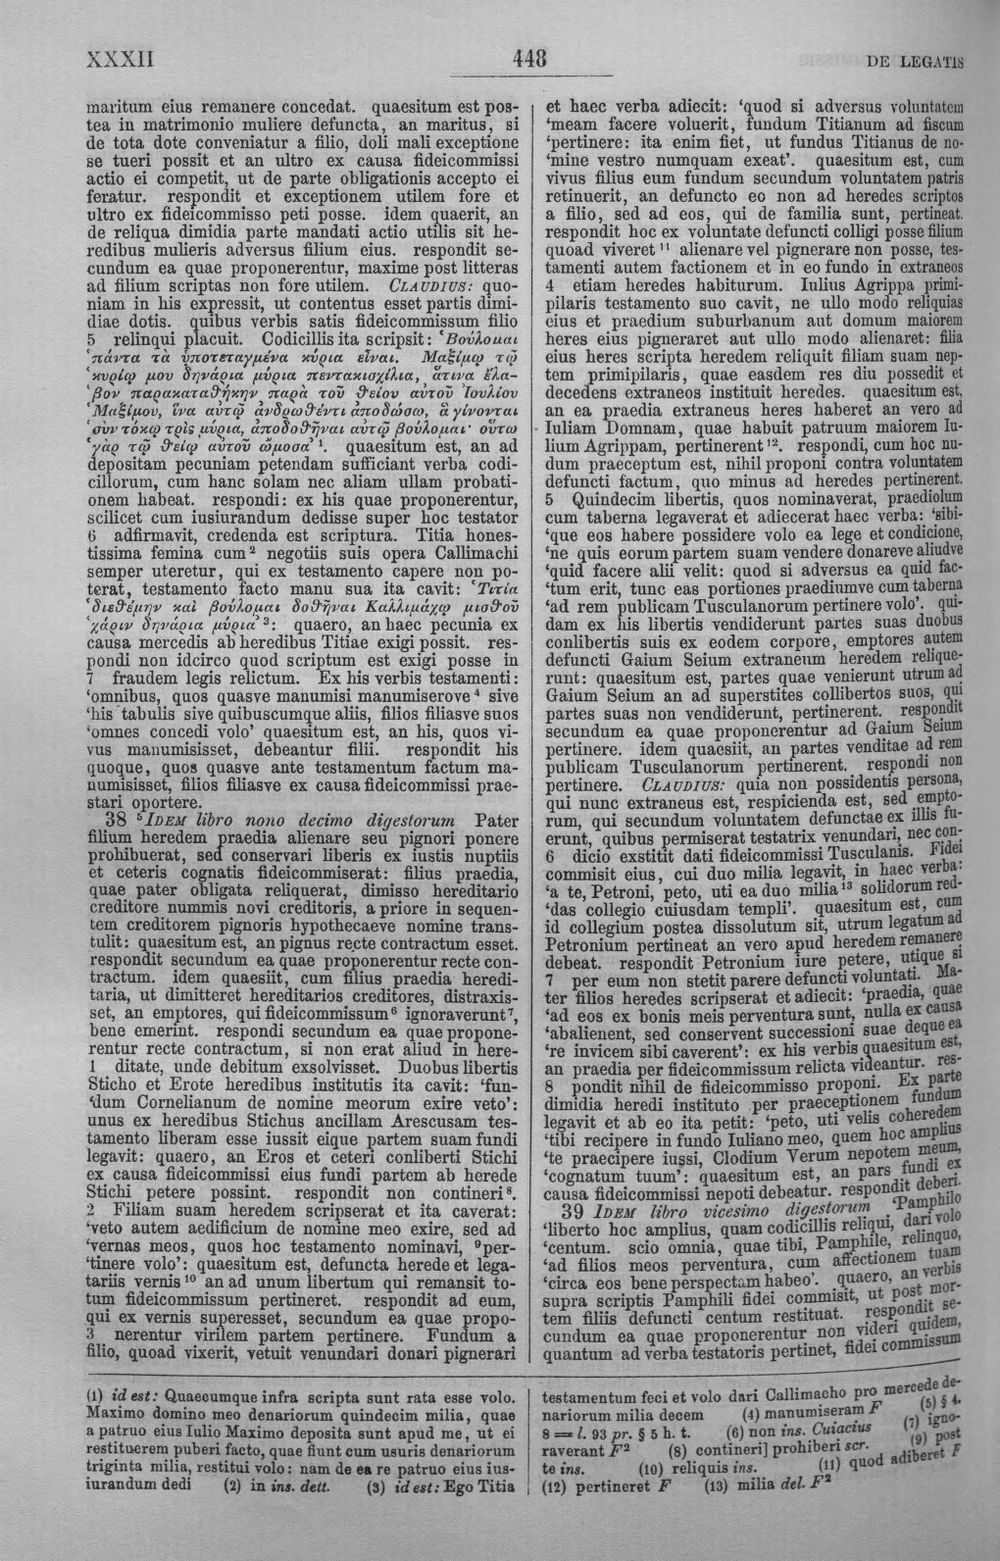 XXXII
448
DE LEGATIS
maritum eius remanere concedat. quaesitum est pos-
tea in matrimonio muliere defuncta, an maritus, si
de tota dote conveniatur a filio, doli mali exceptione
se tueri possit et an ultro ex causa fideicommissi
actio ei competit, ut de parte obligationis accepto ei
feratur. respondit et exceptionem utilem fore et
ultro ex fideicommisso peti posse. idem quaerit, an
de reliqua dimidia parte mandati actio utilis sit he-
redibus mulieris adversus filium eius. respondit se-
cundum ea quae proponerentur, maxime post litteras
ad filium scriptas non fore utilem. CLAUDIUS: quo-
niam in his expressit, ut contentus esset partis dimi-
diae dotis. quibus verbis satis fideicommissum filio
5 relinqui placuit. Codicillis ita scripsit: ‘Βούλομαι
‘πάντα τὰ ὑποτεταγμένα κύρια εἶναι. Μαξίμῳ τῷ
‘κυρίῳ μου δηνάρια μύρια πεντακισχίλια, ἅτινα ἔλα-
‘βον παρακαταθήκην παρὰ τοῦ θείου αὐτοῦ Ἰουλίου
‘Μαξίμου, ἵνα αὐτῷ ἀνδρωθέντι ἀποδώσω, ἃ γίνονται
‘σὺν τόκῳ τρὶς μύρια, ἀποδοθῆναι αὐτῷ βούλομαι· οὕτω
‘γὰρ τῷ θείῳ αὐτοῦ ὤμοσα’ 1. quaesitum est, an ad
depositam pecuniam petendam sufficiant verba codi-
cillorum, cum hanc solam nec aliam ullam probati-
onem habeat. respondi: ex his quae proponerentur,
scilicet cum iusiurandum dedisse super hoc testator
6 adfirmavit, credenda est scriptura. Titia hones-
tissima femina cum 2 negotiis suis opera Callimachi
semper uteretur, qui ex testamento capere non po-
terat, testamento facto manu sua ita cavit: ‘Τιτία
‘διεθέμην καὶ βούλομαι δοθῆναι Καλλιμάχῳ μισθοῦ
‘χάριν δηνάρια μύρια’ 3: quaero, an haec pecunia ex
causa mercedis ab heredibus Titiae exigi possit. res-
pondi non idcirco quod scriptum est exigi posse in
7 fraudem legis relictum. Ex his verbis testamenti:
‘omnibus, quos quasve manumisi manumiserove 4 sive
‘his tabulis sive quibuscumque aliis, filios filiasve suos
‘omnes concedi volo’ quaesitum est, an his, quos vi-
vus manumisisset, debeantur filii. respondit his
quoque, quos quasve ante testamentum factum ma-
numisisset, filios filiasve ex causa fideicommissi prae-
stari oportere.
38 5 IDEM libro nono decimo digestorum Pater
filium heredem praedia alienare seu pignori ponere
prohibuerat, sed conservari liberis ex iustis nuptiis
et ceteris cognatis fideicommiserat: filius praedia,
quae pater obligata reliquerat, dimisso hereditario
creditore nummis novi creditoris, a priore in sequen-
tem creditorem pignoris hypothecaeve nomine trans-
tulit: quaesitum est, an pignus recte contractum esset.
respondit secundum ea quae proponerentur recte con-
tractum. idem quaesiit, cum filius praedia heredi-
taria, ut dimitteret hereditarios creditores, distraxis-
set, an emptores, qui fideicommissum 6 ignoraverunt 7,
bene emerint. respondi secundum ea quae propone-
rentur recte contractum, si non erat aliud in here-
1 ditate, unde debitum exsolvisset. Duobus libertis
Sticho et Erote heredibus institutis ita cavit: ‘fun-
‘dum Cornelianum de nomine meorum exire veto’:
unus ex heredibus Stichus ancillam Arescusam tes-
tamento liberam esse iussit eique partem suam fundi
legavit: quaero, an Eros et ceteri conliberti Stichi
ex causa fideicommissi eius fundi partem ab herede
Stichi petere possint. respondit non contineri 8.
2 Filiam suam heredem scripserat et ita caverat:
‘veto autem aedificium de nomine meo exire, sed ad
‘vernas meos, quos hoc testamento nominavi, 9 per-
‘tinere volo’: quaesitum est, defuncta herede et lega-
tariis vernis 10 an ad unum libertum qui remansit to-
tum fideicommissum pertineret. respondit ad eum,
qui ex vernis superesset, secundum ea quae propo-
3 nerentur virilem partem pertinere. Fundum a
filio, quoad vixerit, vetuit venundari donari pignerari
et haec verba adiecit: ‘quod si adversus voluntatem
‘meam facere voluerit, fundum Titianum ad fiscum
‘pertinere: ita enim fiet, ut fundus Titianus de no-
‘mine vestro numquam exeat’. quaesitum est, cum
vivus filius eum fundum secundum voluntatem patris
retinuerit, an defuncto eo non ad heredes scriptos
a filio, sed ad eos, qui de familia sunt, pertineat.
respondit hoc ex voluntate defuncti colligi posse filium
quoad viveret 11 alienare vel pignerare non posse, tes-
tamenti autem factionem et in eo fundo in extraneos
4 etiam heredes habiturum. Iulius Agrippa primi-
pilaris testamento suo cavit, ne ullo modo reliquias
eius et praedium suburbanum aut domum maiorem
heres eius pigneraret aut ullo modo alienaret: filia
eius heres scripta heredem reliquit filiam suam nep-
tem primipilaris, quae easdem res diu possedit et
decedens extraneos instituit heredes. quaesitum est,
an ea praedia extraneus heres haberet an vero ad
Iuliam Domnam, quae habuit patruum maiorem Iu-
lium Agrippam, pertinerent 12. respondi, cum hoc nu-
dum praeceptum est, nihil proponi contra voluntatem
defuncti factum, quo minus ad heredes pertinerent.
5 Quindecim libertis, quos nominaverat, praediolum
cum taberna legaverat et adiecerat haec verba: ‘sibi-
‘que eos habere possidere volo ea lege et condicione,
‘ne quis eorum partem suam vendere donareve aliudve
‘quid facere alii velit: quod si adversus ea quid fac-
‘tum erit, tunc eas portiones praediumve cum taberna
‘ad rem publicam Tusculanorum pertinere volo’. qui-
dam ex his libertis vendiderunt partes suas duobus
conlibertis suis ex eodem corpore, emptores autem
defuncti Gaium Seium extraneum heredem relique-
runt: quaesitum est, partes quae venierunt utrum ad
Gaium Seium an ad superstites collibertos suos, qui
partes suas non vendiderunt, pertinerent. respondit
secundum ea quae proponerentur ad Gaium Seium
pertinere. idem quaesiit, an partes venditae ad rem
publicam Tusculanorum pertinerent. respondi non
pertinere. CLAUDIUS: quia non possidentis persona,
qui nunc extraneus est, respicienda est, sed empto-
rum, qui secundum voluntatem defunctae ex illis fu-
erunt, quibus permiserat testatrix venundari, nec con-
6 dicio exstitit dati fideicommissi Tusculanis. Fidei
commisit eius, cui duo milia legavit, in haec verba:
‘a te, Petroni, peto, uti ea duo milia 13 solidorum red-
‘das collegio cuiusdam templi’. quaesitum est, cum
id collegium postea dissolutum sit, utrum legatum ad
Petronium pertineat an vero apud heredem remanere
debeat. respondit Petronium iure petere, utique si
7 per eum non stetit parere defuncti voluntati. Ma-
ter filios heredes scripserat et adiecit: ‘praedia, quae
‘ad eos ex bonis meis perventura sunt, nulla ex causa
‘abalienent, sed conservent successioni suae deque ea
‘re invicem sibi caverent’: ex his verbis quaesitum est,
an praedia per fideicommissum relicta videantur. res-
8 pondit nihil de fideicommisso proponi. Ex parte
dimidia heredi instituto per praeceptionem fundum
legavit et ab eo ita petit: ‘peto, uti velis coheredem
‘tibi recipere in fundo Iuliano meo, quem hoc amplius
‘te praecipere iussi, Clodium Verum nepotem meum,
‘cognatum tuum’: quaesitum est, an pars fundi ex
causa fideicommissi nepoti debeatur. respondit deberi.
39 IDEM libro vicesimo digestorum ‘Pamphilo
‘liberto hoc amplius, quam codicillis reliqui, dari volo
‘centum. scio omnia, quae tibi, Pamphile, relinquo,
‘ad filios meos perventura, cum affectionem tuam
‘circa eos bene perspectam habeo’. quaero, an verbis
supra scriptis Pamphili fidei commisit, ut post mor-
tem filiis defuncti centum restituat. respondit se-
cundum ea quae proponerentur non videri quidem,
quantum ad verba testatoris pertinet, fidei commissum
(1) id est: Quaecumque infra scripta sunt rata esse volo.
Maximo domino meo denariorum quindecim milia, quae
a patruo eius Iulio Maximo deposita sunt apud me, ut ei
restituerem puberi facto, quae fiunt cum usuris denariorum
triginta milia, restitui volo: nam de ea re patruo eius ius-
iurandum dedi (2) in ins. dett. (3) id est: Ego Titia
testamentum feci et volo dari Callimacho pro mercede de-
nariorum milia decem (4) manumiseram F (5) § 4.
8 = l. 93 pr. § 5 h. t. (6) non ins. Cuiacius (7) igno-
raverant F2 (8) contineri] prohiberi scr. (9) post
te ins. (10) reliquis ins. (11) quod adiberet F
(12) pertineret F (13) milia del. F2